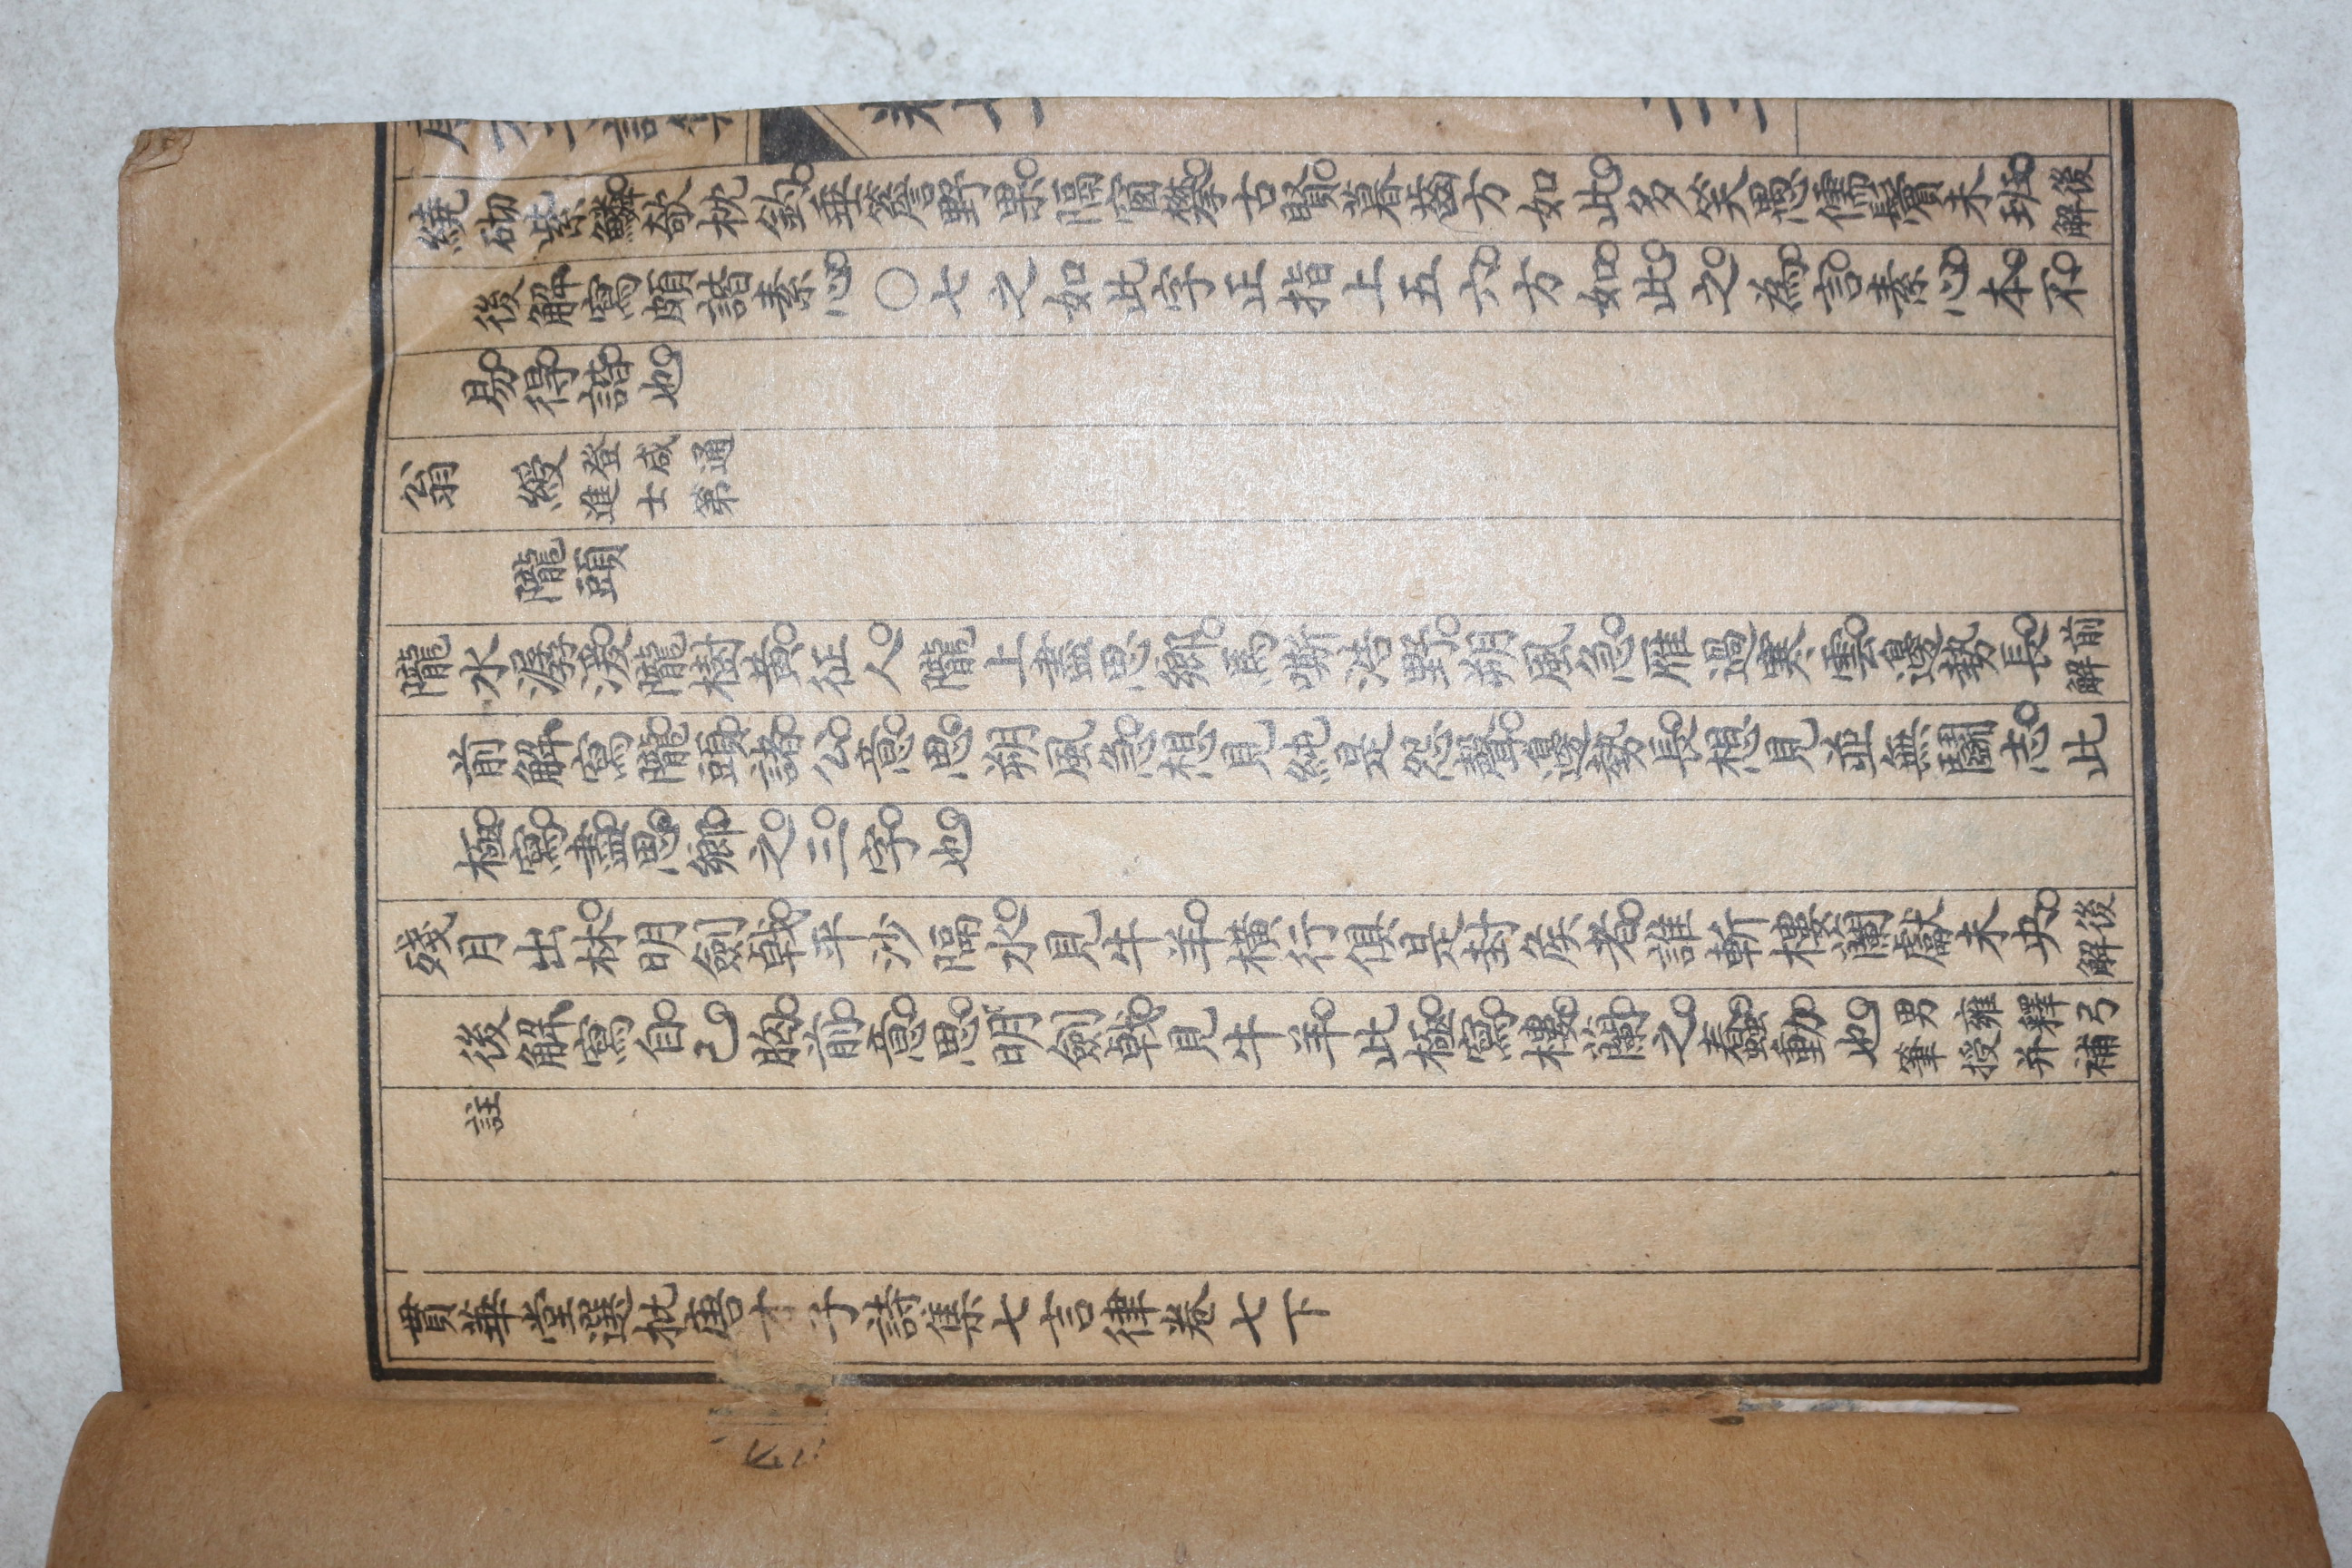 繞砌紫鱗欹枕釣。垂簷野果隔窗攀。古賢暮齒方如此。多笑愚儒鬢未斑。後解
後解寫頗諧素心。○七之如此字正指上五六。方如此。之為言素心本不
易得諧也。
翁綬登咸通進士第
隴頭
隴水潺湲隴樹黃。征人隴上盡思鄉。馬嘶浩野朔風急。雁過寒雲邊勢長。前解
前解寫隴頭諸公意思。朔風急。想見純是怨聲。邊勢長。想見並無鬭志。此
極寫盡思鄉之三字也。
殘月出林明劍戟。平沙隔水見牛羊。橫行俱是封侯者。誰斬樓蘭獻未央。後解
後解寫自己胸前意思。明劍戟。見牛羊。此極寫樓蘭之蠢動也。男雍釋弓筆授并補
註
貫華堂選批唐才子詩集七言律卷七下